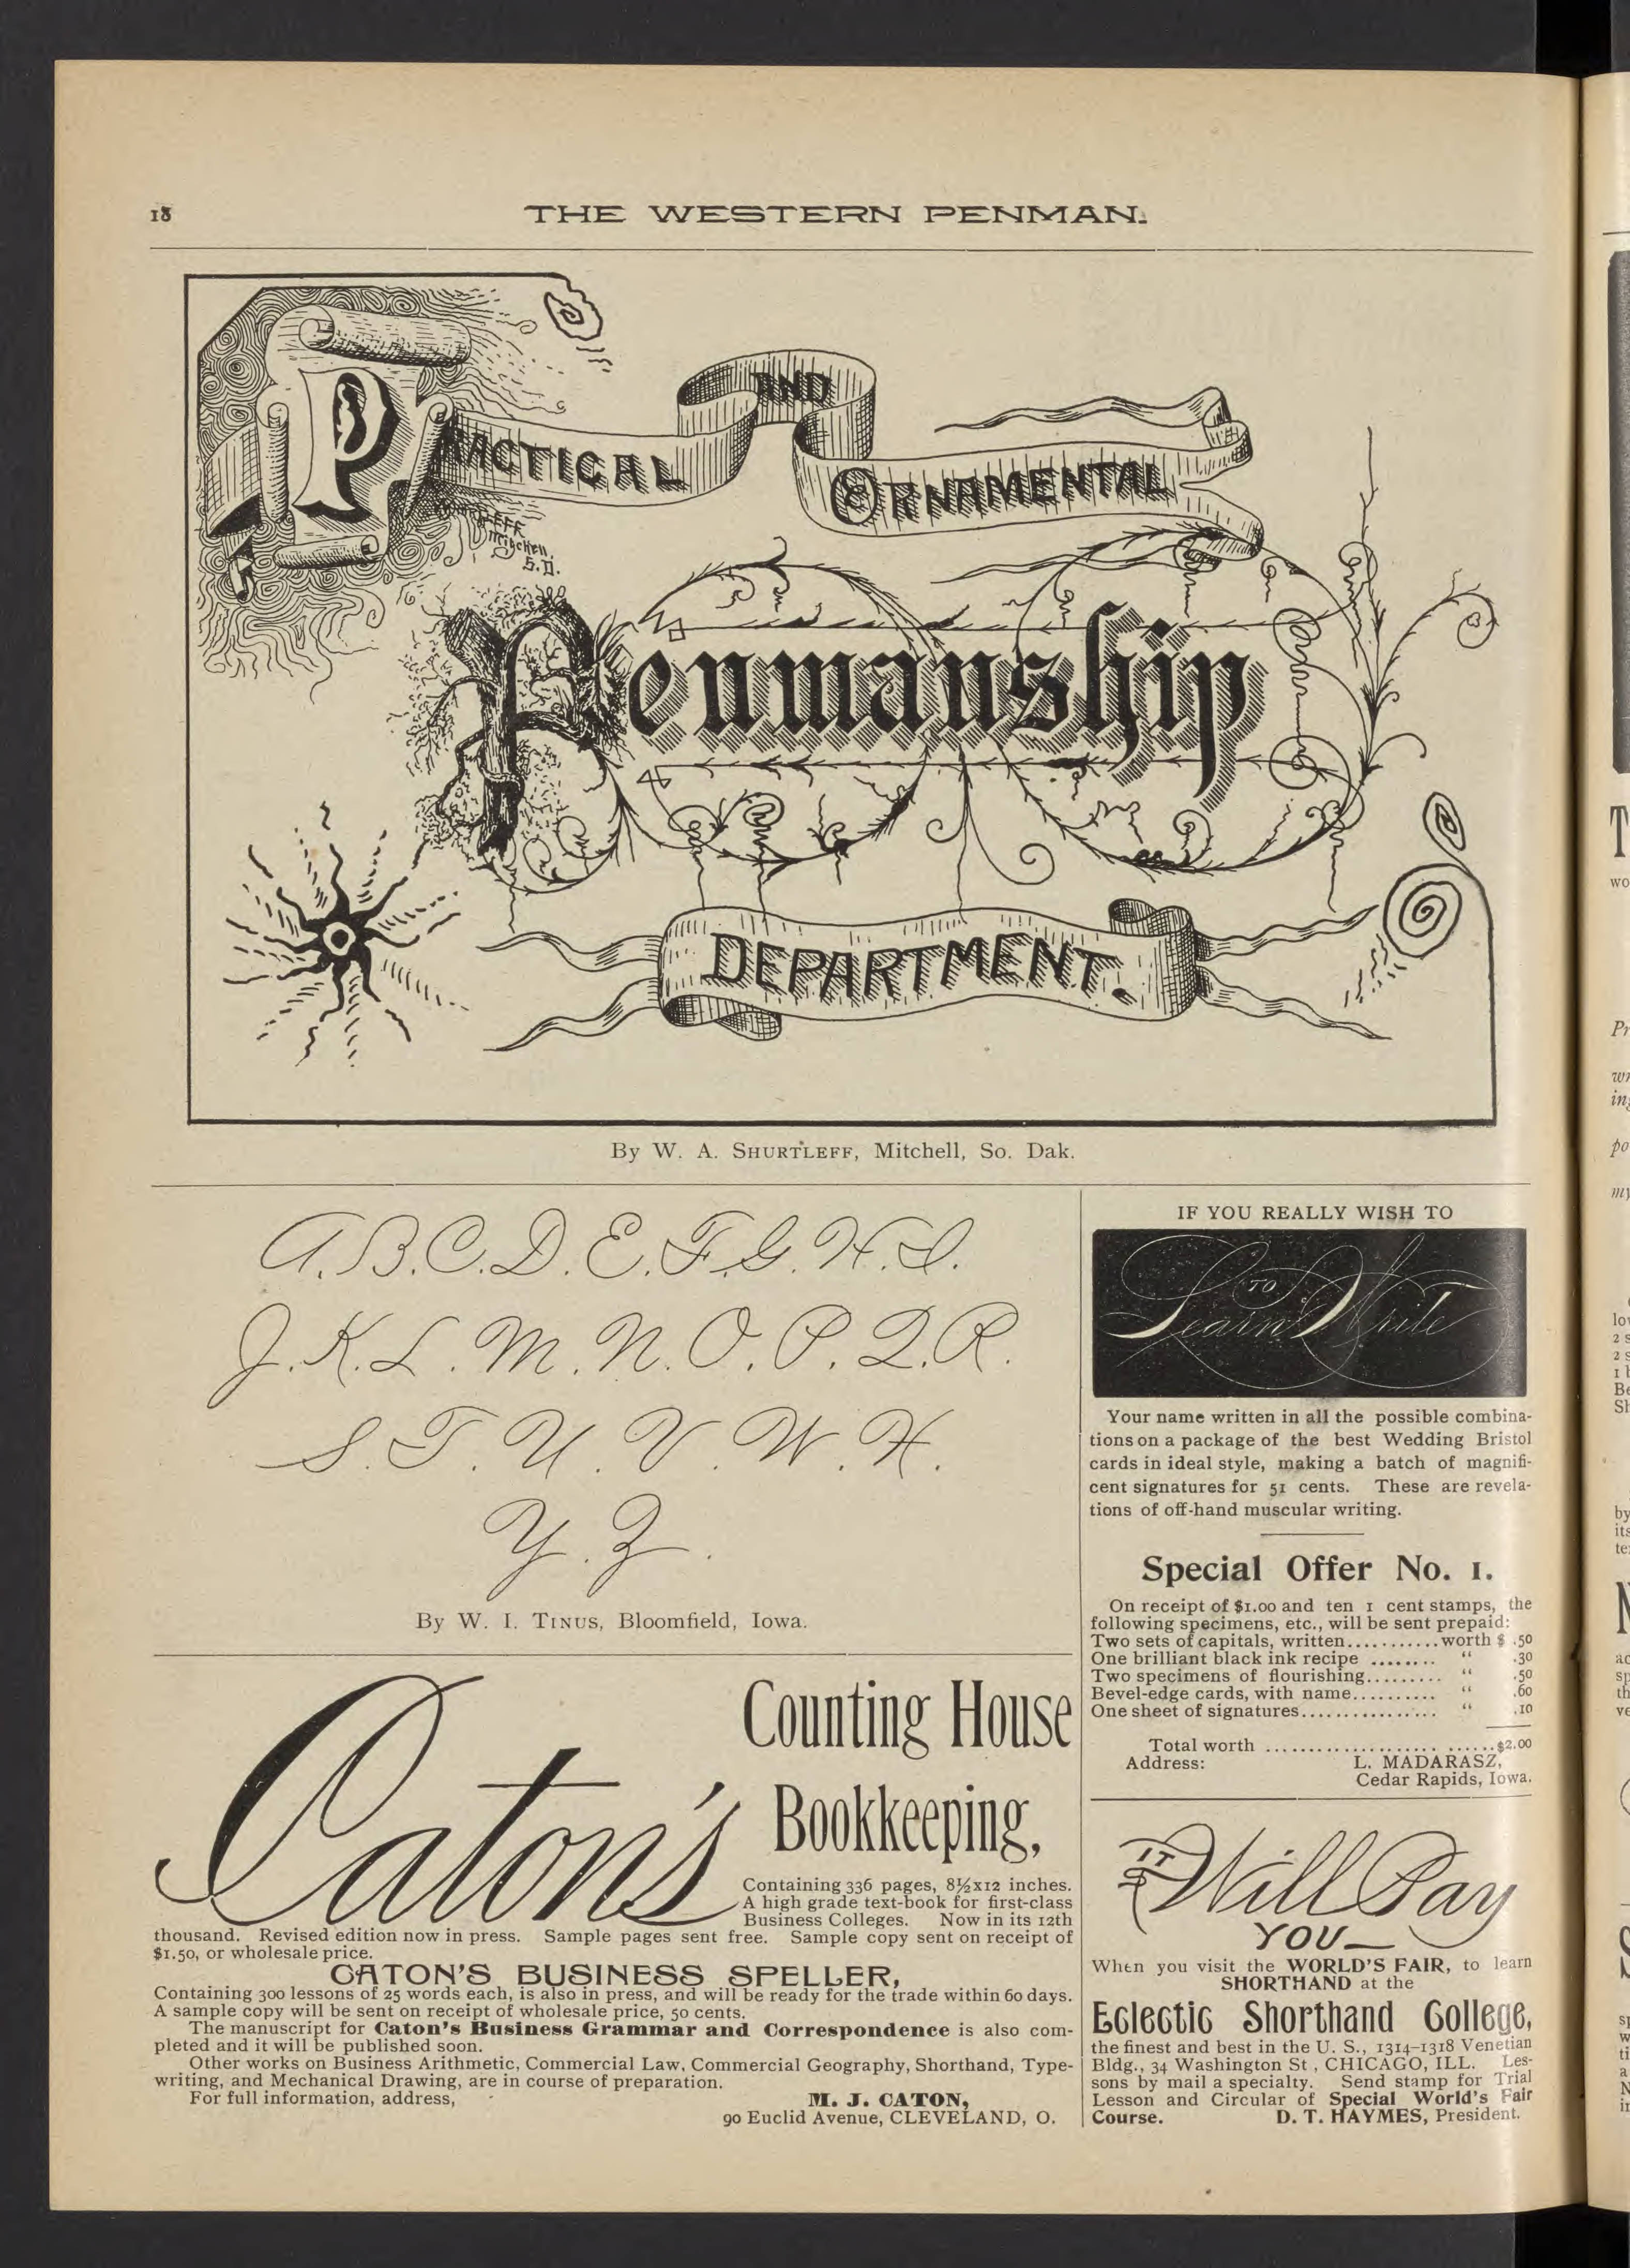 18
THE WESTERN PENMAN.
PRACTICAL AND ORNAMENTAL
SHURTLEFF
Mitchell,
S.D.
Penmanship
DEPARTMENT.
By W. A. SHURTLEFF, Mitchell, So. Dak.
A. B. C. D. E. F. G. H. I.
J. K. L. M. N. O. P. Q. R.
S. T. U. V. W. X.
Y. Z.
By W. I. TINUS, Bloomfield, Iowa.
Caton's
Counting House
Bookkeeping,
Containing 336 pages, 8½x12 inches.
A high grade text-book for first-class
Business Colleges. Now in its 12th
thousand. Revised edition now in press. Sample pages sent free. Sample copy sent on receipt of
$1.50, or wholesale price.
CATON'S BUSINESS SPELLER,
Containing 300 lessons of 25 words each, is also in press, and will be ready for the trade within 60 days.
A sample copy will be sent on receipt of wholesale price, 50 cents.
The manuscript for Caton's Business Grammar and Correspondence is also com-
pleted and it will be published soon.
Other works on Business Arithmetic, Commercial Law, Commercial Geography, Shorthand, Type-
writing, and Mechanical Drawing, are in course of preparation.
For full information, address,
M. J. CATON,
90 Euclid Avenue, CLEVELAND, O.
IF YOU REALLY WISH TO
Learn TO Write
Your name written in all the possible combina-
tions on a package of the best Wedding Bristol
cards in ideal style, making a batch of magnifi-
cent signatures for 51 cents. These are revela-
tions of off-hand muscular writing.
Special Offer No. 1.
On receipt of $1.00 and ten 1 cent stamps, the
following specimens, etc., will be sent prepaid:
Two sets of capitals, written...........worth $ .50
One brilliant black ink recipe ........ " .30
Two specimens of flourishing......... " .50
Bevel-edge cards, with name.......... " .60
One sheet of signatures................ " .10
Total worth ..........................$2.00
Address: L. MADARASZ,
Cedar Rapids, Iowa.
IT Will Pay
YOU
When you visit the WORLD'S FAIR, to learn
SHORTHAND at the
Eclectic Shorthand College,
the finest and best in the U. S., 1314-1318 Venetian
Bldg., 34 Washington St, CHICAGO, ILL. Les-
sons by mail a specialty. Send stamp for Trial
Lesson and Circular of Special World's Fair
Course. D. T. HAYMES, President.